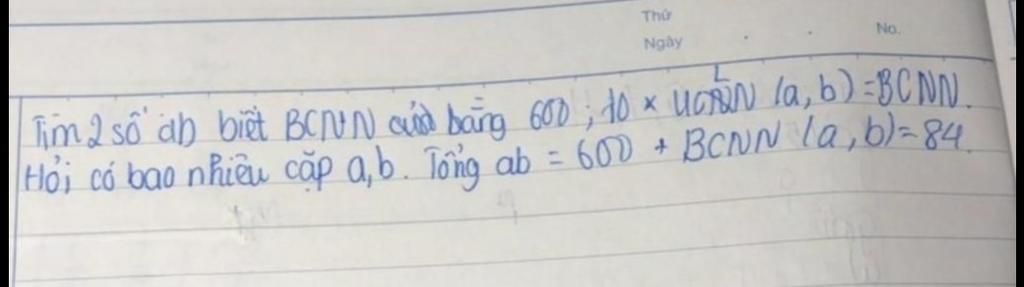 Thứ
Ngày
No.
Tìm 2 số ab biết BCNN của bằng 600 ; 10 x ƯCLN (a, b) = BCNN.
Hỏi có bao nhiêu cặp a, b. Tổng ab = 600 + BCNN (a, b) = 84.